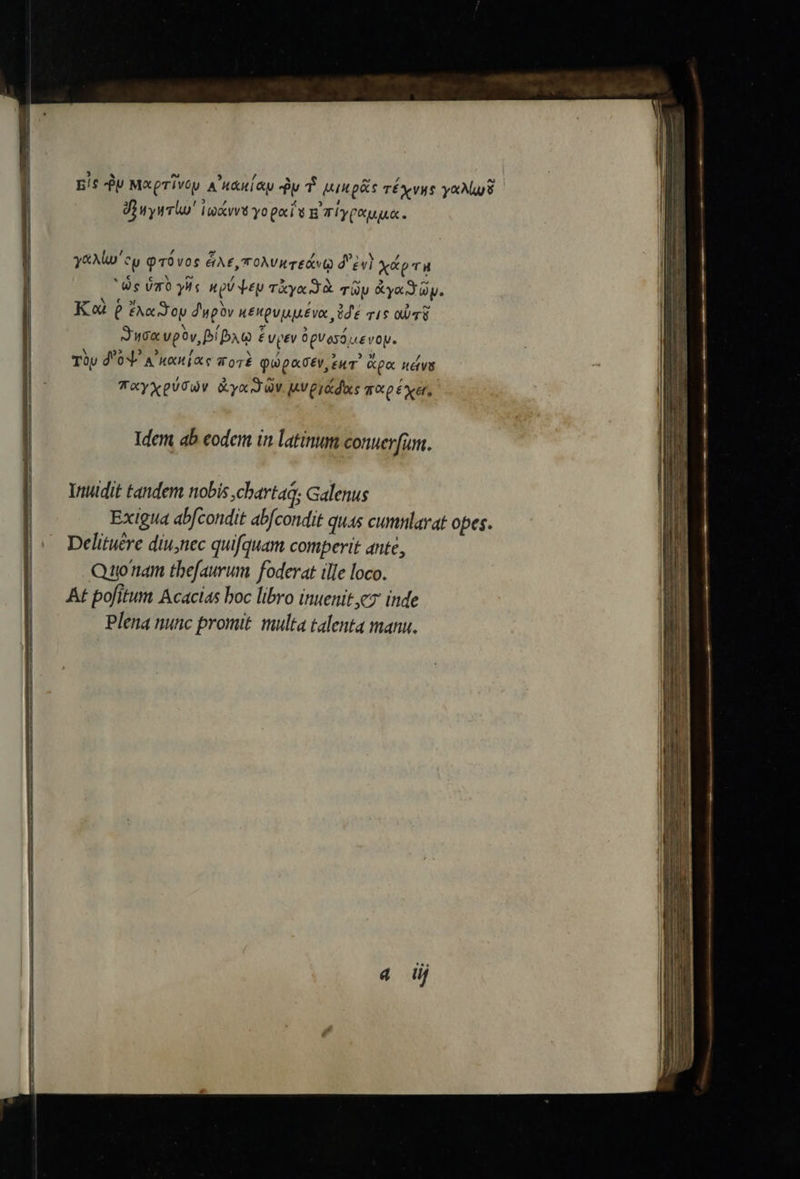 Εἰς τὸν Μαρτῖνον Ἀκακίαν τὸν τῆς μικρᾶς τέχνης γαλίωοῦ
ἐξηγητὴν ἰωάννου γοραίου ἐπίγραμμα.
γαλίων' ἐν φτόνος εἷλε, πολυκτεάνῳ δ' ἐνὶ χάρτῃ
Ὡς ὑπὸ γῆς κρύψεν τἀγαθὰ τῶν ἀγαθῶν.
Καὶ ῥ' ἔλαθον δηρὸν κεκρυμμένα, οὐδέ τις αὐτοῦ
Θησαυρὸν, βίβλῳ εὗρεν ὀρυσσόμενον.
τὸν δ' ὂψ' Ἀκακίας ποτὲ φώρασεν, ἐκ τ' ἄρα κείνου
παγχρύσων ἀγαθῶν μυριάδας παρέχει.
Idem ab eodem in latinum conuersum.
Inuidit tandem nobis, chartaq; Galenus
Exigua abscondit abscondit quas cumularat opes.
Delituêre diu, nec quisquam comperit ante,
Quo'nam thesaurum foderat ille loco.
At positum Acacias hoc libro inuenit, & inde
Plena nunc promit multa talenta manu.
a iij